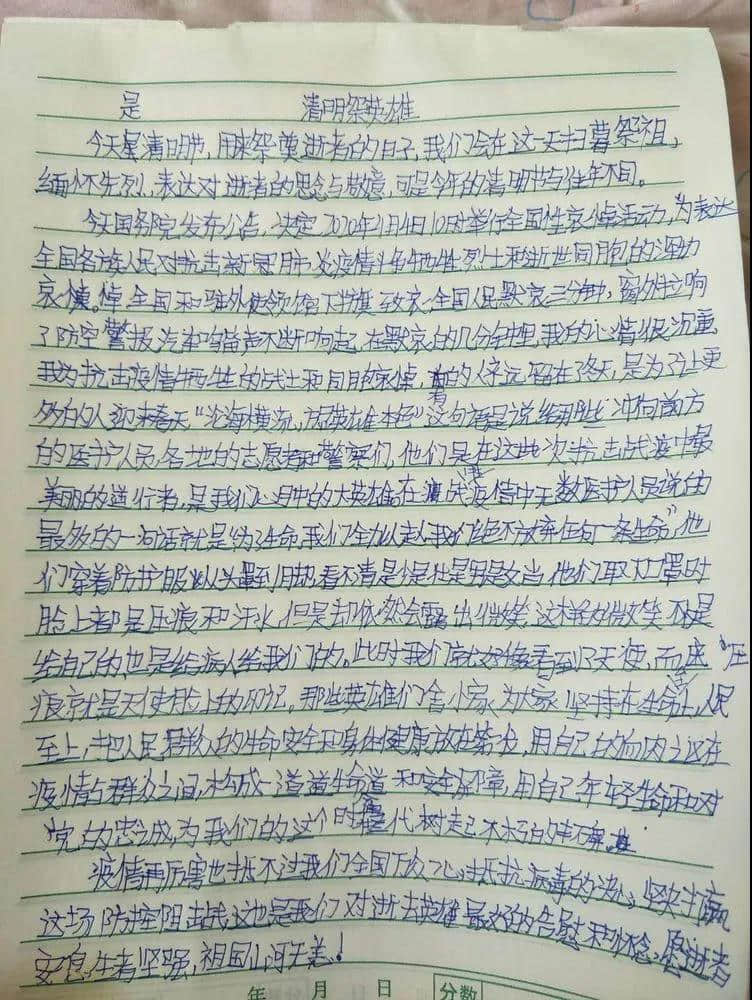 是 清明祭英雄
今天是清明节,用来祭奠逝者的日子,我们会在这一天扫墓祭祖,
缅怀先烈,表达对逝者的思念与敬意,可是今年的清明节与往年不同。
今天国务院发布公告,决定2020年4月4日10时举行全国性哀悼活动,为表达
全国各族人民对抗击新冠肺炎疫情斗争牺牲烈士和逝世同胞的深切
哀悼。悼全国和驻外使领馆下半旗致哀,全国人民默哀三分钟,窗外立响
了防空警报,汽车鸣笛声不断响起,在默哀的几分钟里,我的心情很沉重
我为抗击疫情牺牲的战士和同胞哀悼,有的人永远留在了冬天,是为了让更
多的人迎来春天“沧海横流,方显英雄本色”这句话是说给那些冲向前方
的医护人员,各地的志愿者和警察们,他们是在这些次抗击战疫中最
美丽的逆行者,是我们心目中的大英雄。在这场疫情中无数医护人员说的
最多的一句话就是“为了生命,我们全力以赴,我们绝不放弃任何一条生命”,他
们穿着防护服从头罩到脚,看不清是少是壮是男是女,当他们取下口罩时
脸上都是压痕和汗水,但是却依然会露出微笑,这样的微笑不是
给自己的,也是给病人给我们的。此时我们就好像看到了天使,而压
痕就是天使脸上的印记。那些英雄们舍小家,为大家,坚持在生命至上,人民
至上,把人民群众的生命安全和身体健康放在第一,用自己的血肉之躯在
疫情与群众之间,构成一道道生命道和安全屏障,用自己年轻生命和对
党的忠诚,为我们的这个时代树起不朽的丰碑。
疫情再厉害也抵不过我们全国万众一心,抵抗病毒的决心,坚决打赢
这场防控阻击战,这也是我们对逝去英雄最好的告慰和怀念,愿逝者
安息,生者坚强,祖国山河无恙!
年 月 日 分数